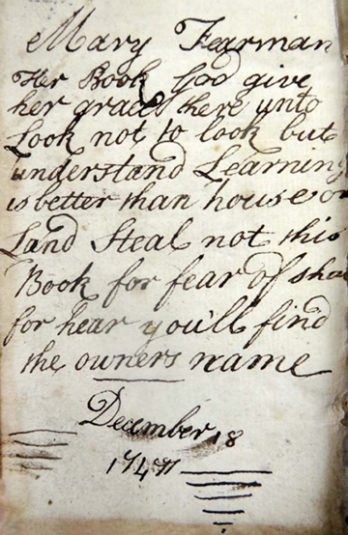 Mary Fearman
Her Book God give
her grace there unto
Look not to look but
understand Learning
is better than house or
Land Steal not this
Book for fear of sha
for hear you'll find
the owners name
December 18
1747